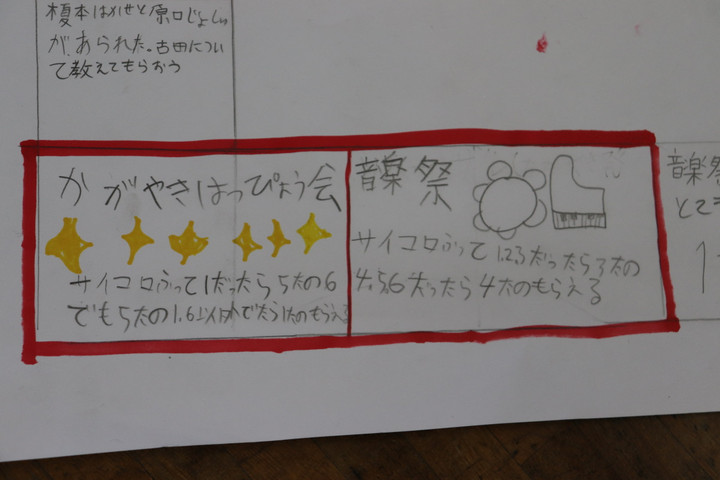 榎本はかせと原口じょしゅ
が、あられた。古田につい
て教えてもらおう
かがやきはっぴょう会
サイコロふって1だったら5たの6
でも5たの1.6以外でたら1たのもらえる
音楽祭
サイコロふって1.2.3だったら3たの
4.5.6だったら4たのもらえる
音楽祭
とても
1